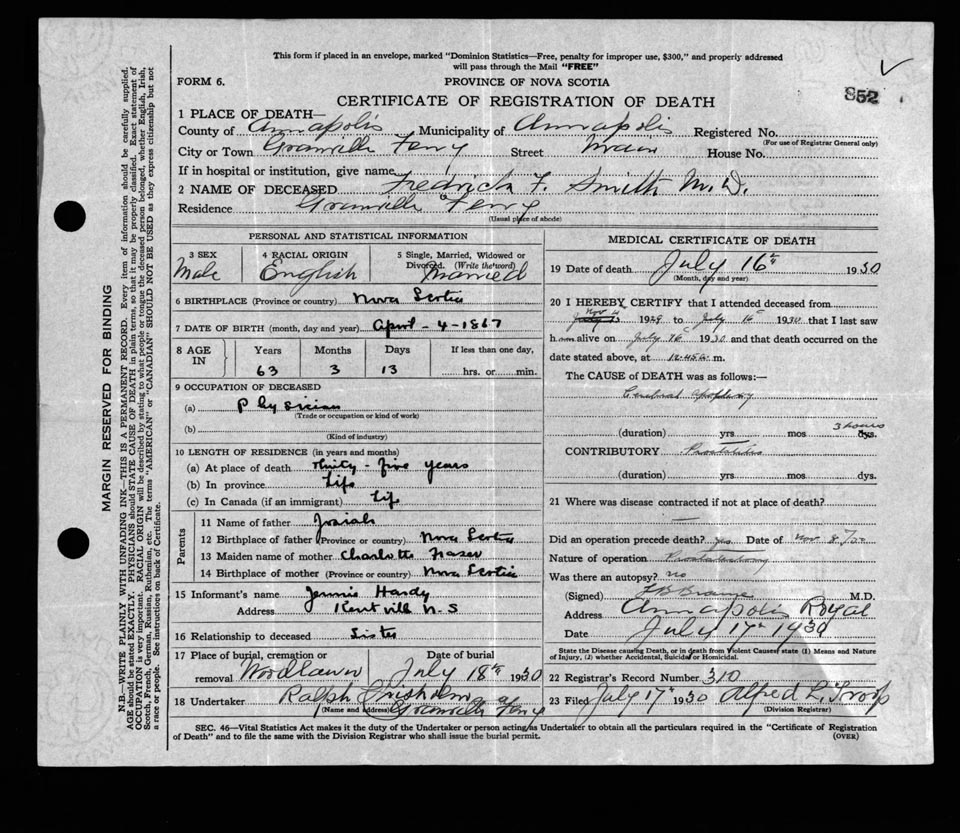 This form if placed in an envelope, marked "Dominion Statistics—Free, penalty for improper use, $300," and properly addressed
will pass through the Mail "FREE"
FORM 6. PROVINCE OF NOVA SCOTIA
852
CERTIFICATE OF REGISTRATION OF DEATH
1 PLACE OF DEATH—
County of Annapolis Municipality of Annapolis Registered No.
(For use of Registrar General only)
City or Town Granville Ferry Street Main House No.
If in hospital or institution, give name
2 NAME OF DECEASED Fredrick F. Smith M.D.
Residence Granville Ferry
(Usual place of abode)
PERSONAL AND STATISTICAL INFORMATION
3 SEX 4 RACIAL ORIGIN 5 Single, Married, Widowed or
Divorced. (Write the word)
Male English Married
6 BIRTHPLACE (Province or country) Nova Scotia
7 DATE OF BIRTH (month, day and year) April - 4 - 1867
8 AGE IN Years Months Days If less than one day,
63 3 13 hrs. or min.
9 OCCUPATION OF DECEASED
(a) Physician
(Trade or occupation or kind of work)
(b)
(Kind of industry)
10 LENGTH OF RESIDENCE (in years and months)
(a) At place of death thirty-five years
(b) In province Life
(c) In Canada (if an immigrant) Life
Parents
11 Name of father Josiah
12 Birthplace of father (Province or country) Nova Scotia
13 Maiden name of mother Charlotte Frazer
14 Birthplace of mother (Province or country) Nova Scotia
15 Informant's name Jennie Hardy
Address Kentville N.S
16 Relationship to deceased Sister
17 Place of burial, cremation or Date of burial
removal Woodlawn July 18th 1930
18 Undertaker Ralph Chisholm
(Name and address) Granville Ferry
MEDICAL CERTIFICATE OF DEATH
19 Date of death July 16th 1930
(Month, day and year)
20 I HEREBY CERTIFY that I attended deceased from
Nov 1929 to July 16 1930 that I last saw
him alive on July 16 1930 and that death occurred on the
date stated above, at 12.45 a. m.
The CAUSE of DEATH was as follows:—
Cerebral apoplexy
(duration) yrs mos 3 hours dys.
CONTRIBUTORY Prostatitis
(duration) yrs. mos. dys.
21 Where was disease contracted if not at place of death?
Did an operation precede death? yes Date of Nov 8
Nature of operation Prostatectomy
Was there an autopsy? no
(Signed) M.D.
Address Annapolis Royal
Date July 17th 1930
State the Disease causing Death, or in death from Violent Causes, state (1) Means and Nature
of Injury, (2) whether Accidental, Suicidal or Homicidal.
22 Registrar's Record Number 310
23 Filed July 17th 1930 Alfred L. Troop
(Division Registrar)
SEC. 46—Vital Statistics Act makes it the duty of the Undertaker or person acting as Undertaker to obtain all the particulars required in the "Certificate of Registration
of Death" and to file the same with the Division Registrar who shall issue the burial permit. (OVER)
MARGIN RESERVED FOR BINDING
N.B.—WRITE PLAINLY WITH UNFADING INK—THIS IS A PERMANENT RECORD. Every item of information should be carefully supplied.
AGE should be stated EXACTLY. PHYSICIANS should STATE CAUSE OF DEATH in plain terms, so that it may be properly classified. Exact statement of
OCCUPATION is very important. RACIAL ORIGIN will be described by stating to what people or tongue the deceased person belonged, whether English, Irish,
Scotch, French, German, Russian, Ruthenian, etc. The terms "AMERICAN" or "CANADIAN" SHOULD NOT BE USED as they express citizenship but not
a race or people. See instructions on back of Certificate.